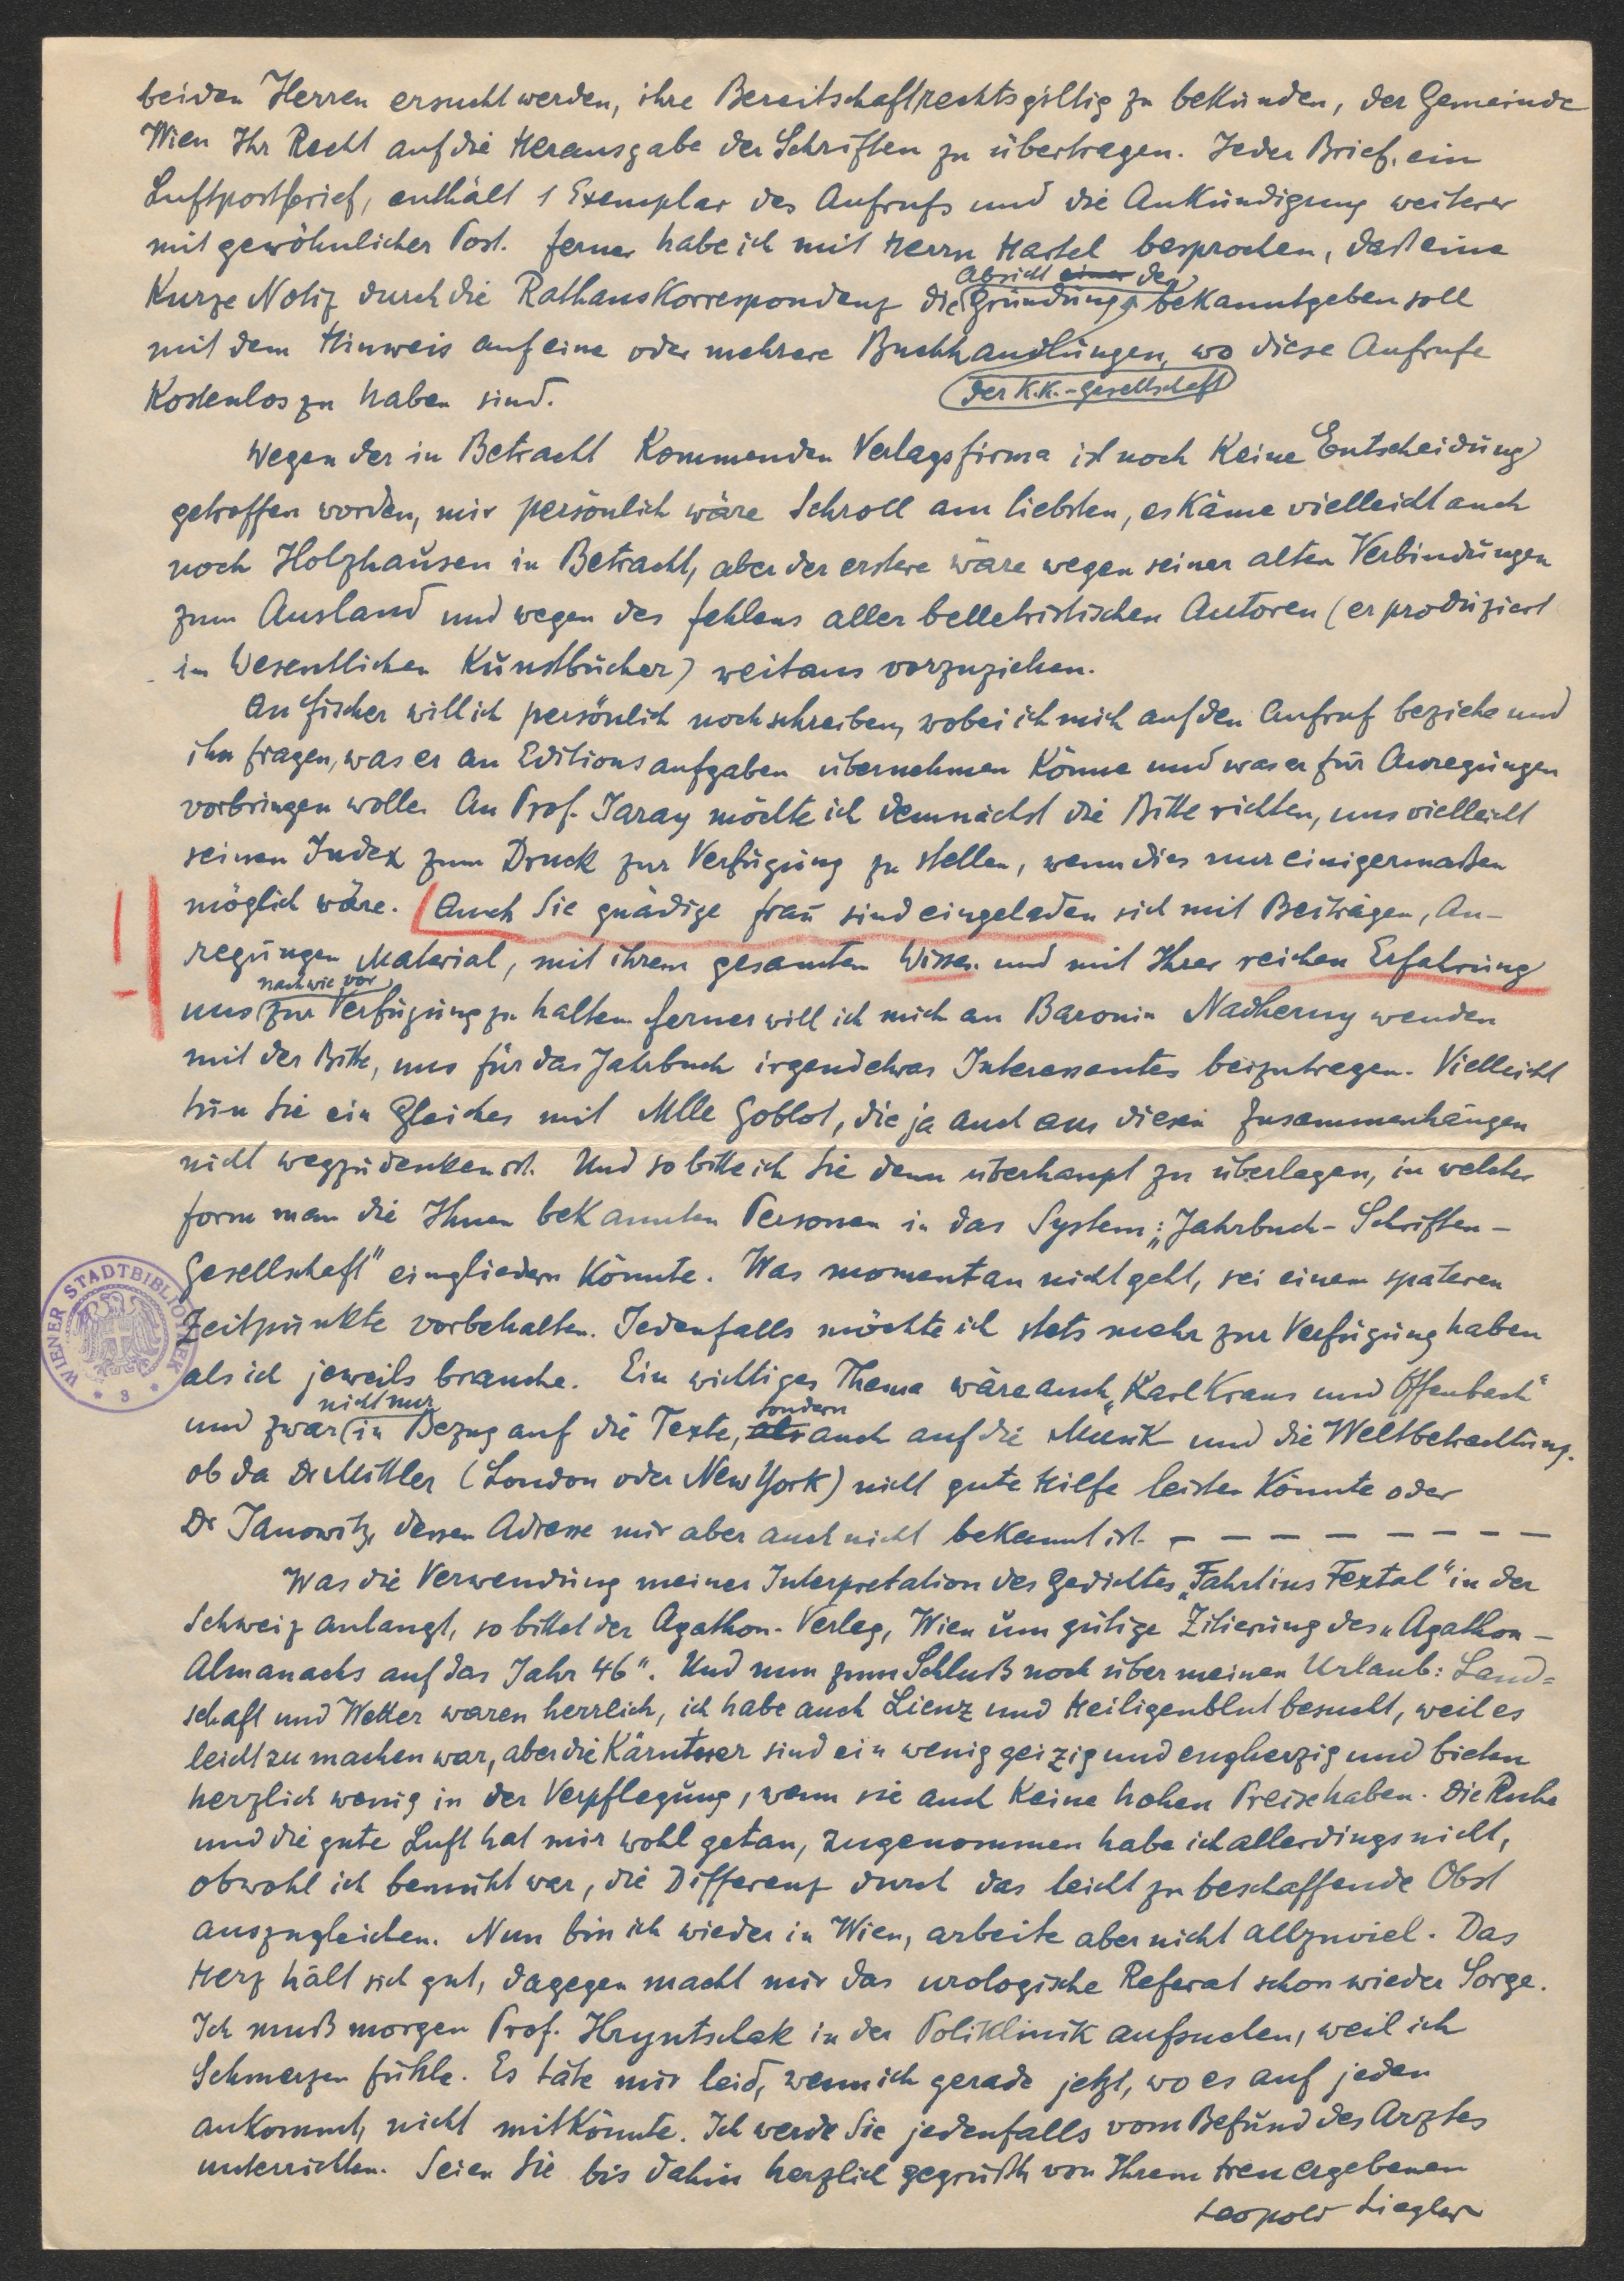 beiden Herren ersucht werden, ihre Bereitschaft rechtsgiltig zu bekunden, der Gemeinde
Wien Ihr Recht auf die Herausgabe der Schriften zu übertragen. Jeder Brief, ein
Luftpostbrief, enthält 1 Exemplar des Aufrufs und die Ankündigung weiterer
mit gewöhnlicher Post. Ferner habe ich mit Herrn Hastel besprochen, daß eine
Absicht einer der
Kurze Notiz durch die Rathauskorrespondenz die Gründung bekanntgeben soll
mit dem Hinweis auf eine oder mehrere Buchhandlungen, wo diese Aufrufe
der K.K.-Gesellschaft
Kostenlos zu haben sind.
Wegen der in Betracht Kommenden Verlagsfirma ist noch Keine Entscheidung
getroffen worden, mir persönlich wäre Schroll am liebsten, es Käme vielleicht auch
noch Holzhausen in Betracht, aber der erstere wäre wegen seiner alten Verbindungen
zum Ausland und wegen des fehlens aller belletristischen Autoren (er produziert
im Wesentlichen Kunstbücher) weitaus vorzuziehen.
An Fischer will ich persönlich noch schreiben, wobei ich mich auf den Aufruf beziehe und
ihn fragen, was er an Editionsaufgaben übernehmen Könne und was er für Anregungen
vorbringen wolle. An Prof. Jaray möchte ich demnächst die Bitte richten, uns vielleicht
seinen Index zum Druck zur Verfügung zu stellen, wenn dies nur einigermaßen
möglich wäre. Auch Sie gnädige Frau sind eingeladen sich mit Beiträgen, An-
regungen Material, mit ihrem gesamten Wissen und mit Ihrer reichen Erfahrung
nach wie vor
uns zur Verfügung zu halten. Ferner will ich mich an Baronin Nadherny wenden
mit der Bitte, uns für das Jahrbuch irgendetwas Interessantes beizutragen. Vielleicht
tun Sie ein Gleiches mit Mlle Goblot, die ja auch aus diesen Zusammenhängen
nicht wegzudenken ist. Und so bitte ich Sie denn überhaupt zu überlegen, in welcher
Form man die Ihnen bekannten Personen in das System: „Jahrbuch - Schriften -
Gesellschaft" eingliedern Könnte. Was momentan nicht geht, sei einem späteren
Zeitpunkte vorbehalten. Jedenfalls möchte ich stets mehr zur Verfügung haben
als ich jeweils brauche. Ein wichtiges Thema wäre auch „Karl Kraus und Offenbach"
nicht nur sondern
und zwar in Bezug auf die Texte, als auch auf die Musik und die Weltbetrachtung.
ob da Dr Mittler (London oder New York) nicht gute Hilfe leisten Könnte oder
Dr Janowitz, dessen Adresse mir aber auch nicht bekannt ist. – – – – – – – – –
Was die Verwendung meiner Interpretation des Gedichtes „Fahrt ins Fextal" in der
Schweiz anlangt, so bittet der Agathon-Verlag, Wien um gütige Zitierung des „Agathon -
Almanachs auf das Jahr 46". Und nun zum Schluß noch über meinen Urlaub: Land=
schaft und Wetter waren herrlich, ich habe auch Lienz und Heiligenblut besucht, weil es
leicht zu machen war, aber die Kärntner sind ein wenig geizig und engherzig und bieten
herzlich wenig in der Verpflegung, wenn sie auch Keine hohen Preise haben. Die Ruhe
und die gute Luft hat mir wohl getan, zugenommen habe ich allerdings nicht,
obwohl ich bemüht war, die Differenz durch das leicht zu beschaffende Obst
auszugleichen. Nun bin ich wieder in Wien, arbeite aber nicht allzuviel. Das
Herz hält sich gut, dagegen macht mir das urologische Referat schon wieder Sorge.
Ich muß morgen Prof. Hryntschak in der Poliklinik aufsuchen, weil ich
Schmerzen fühle. Es täte mir leid, wenn ich gerade jetzt, wo es auf jeden
ankommt, nicht mitkönnte. Ich werde Sie jedenfalls vom Befund des Arztes
unterrichten. Seien Sie bis dahin herzlich gegrüßt von Ihrem treu ergebenen
Leopold Liegler
WIENER STADTBIBLIOTHEK
* 3 *